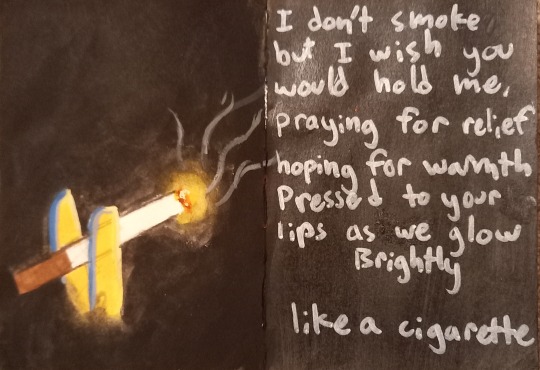 I don't smoke,
but I wish you
would hold me,
praying for relief
hoping for warmth
Pressed to your
lips as we glow
Brightly
like a cigarette